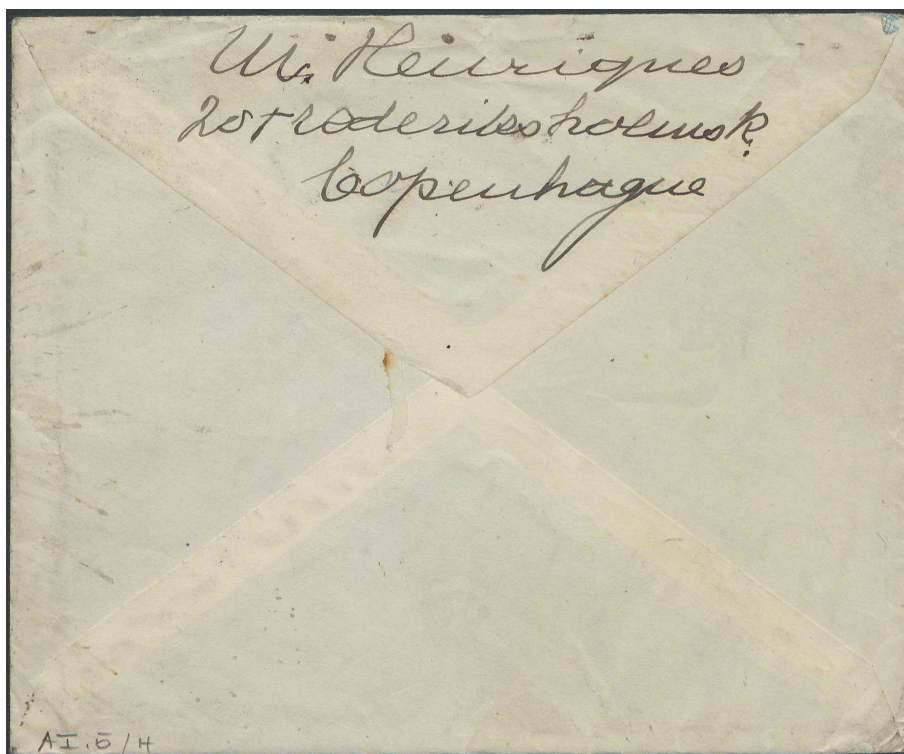 M. Henriques
20 Frederiksholmsk.
Copenhague
AI.5/H